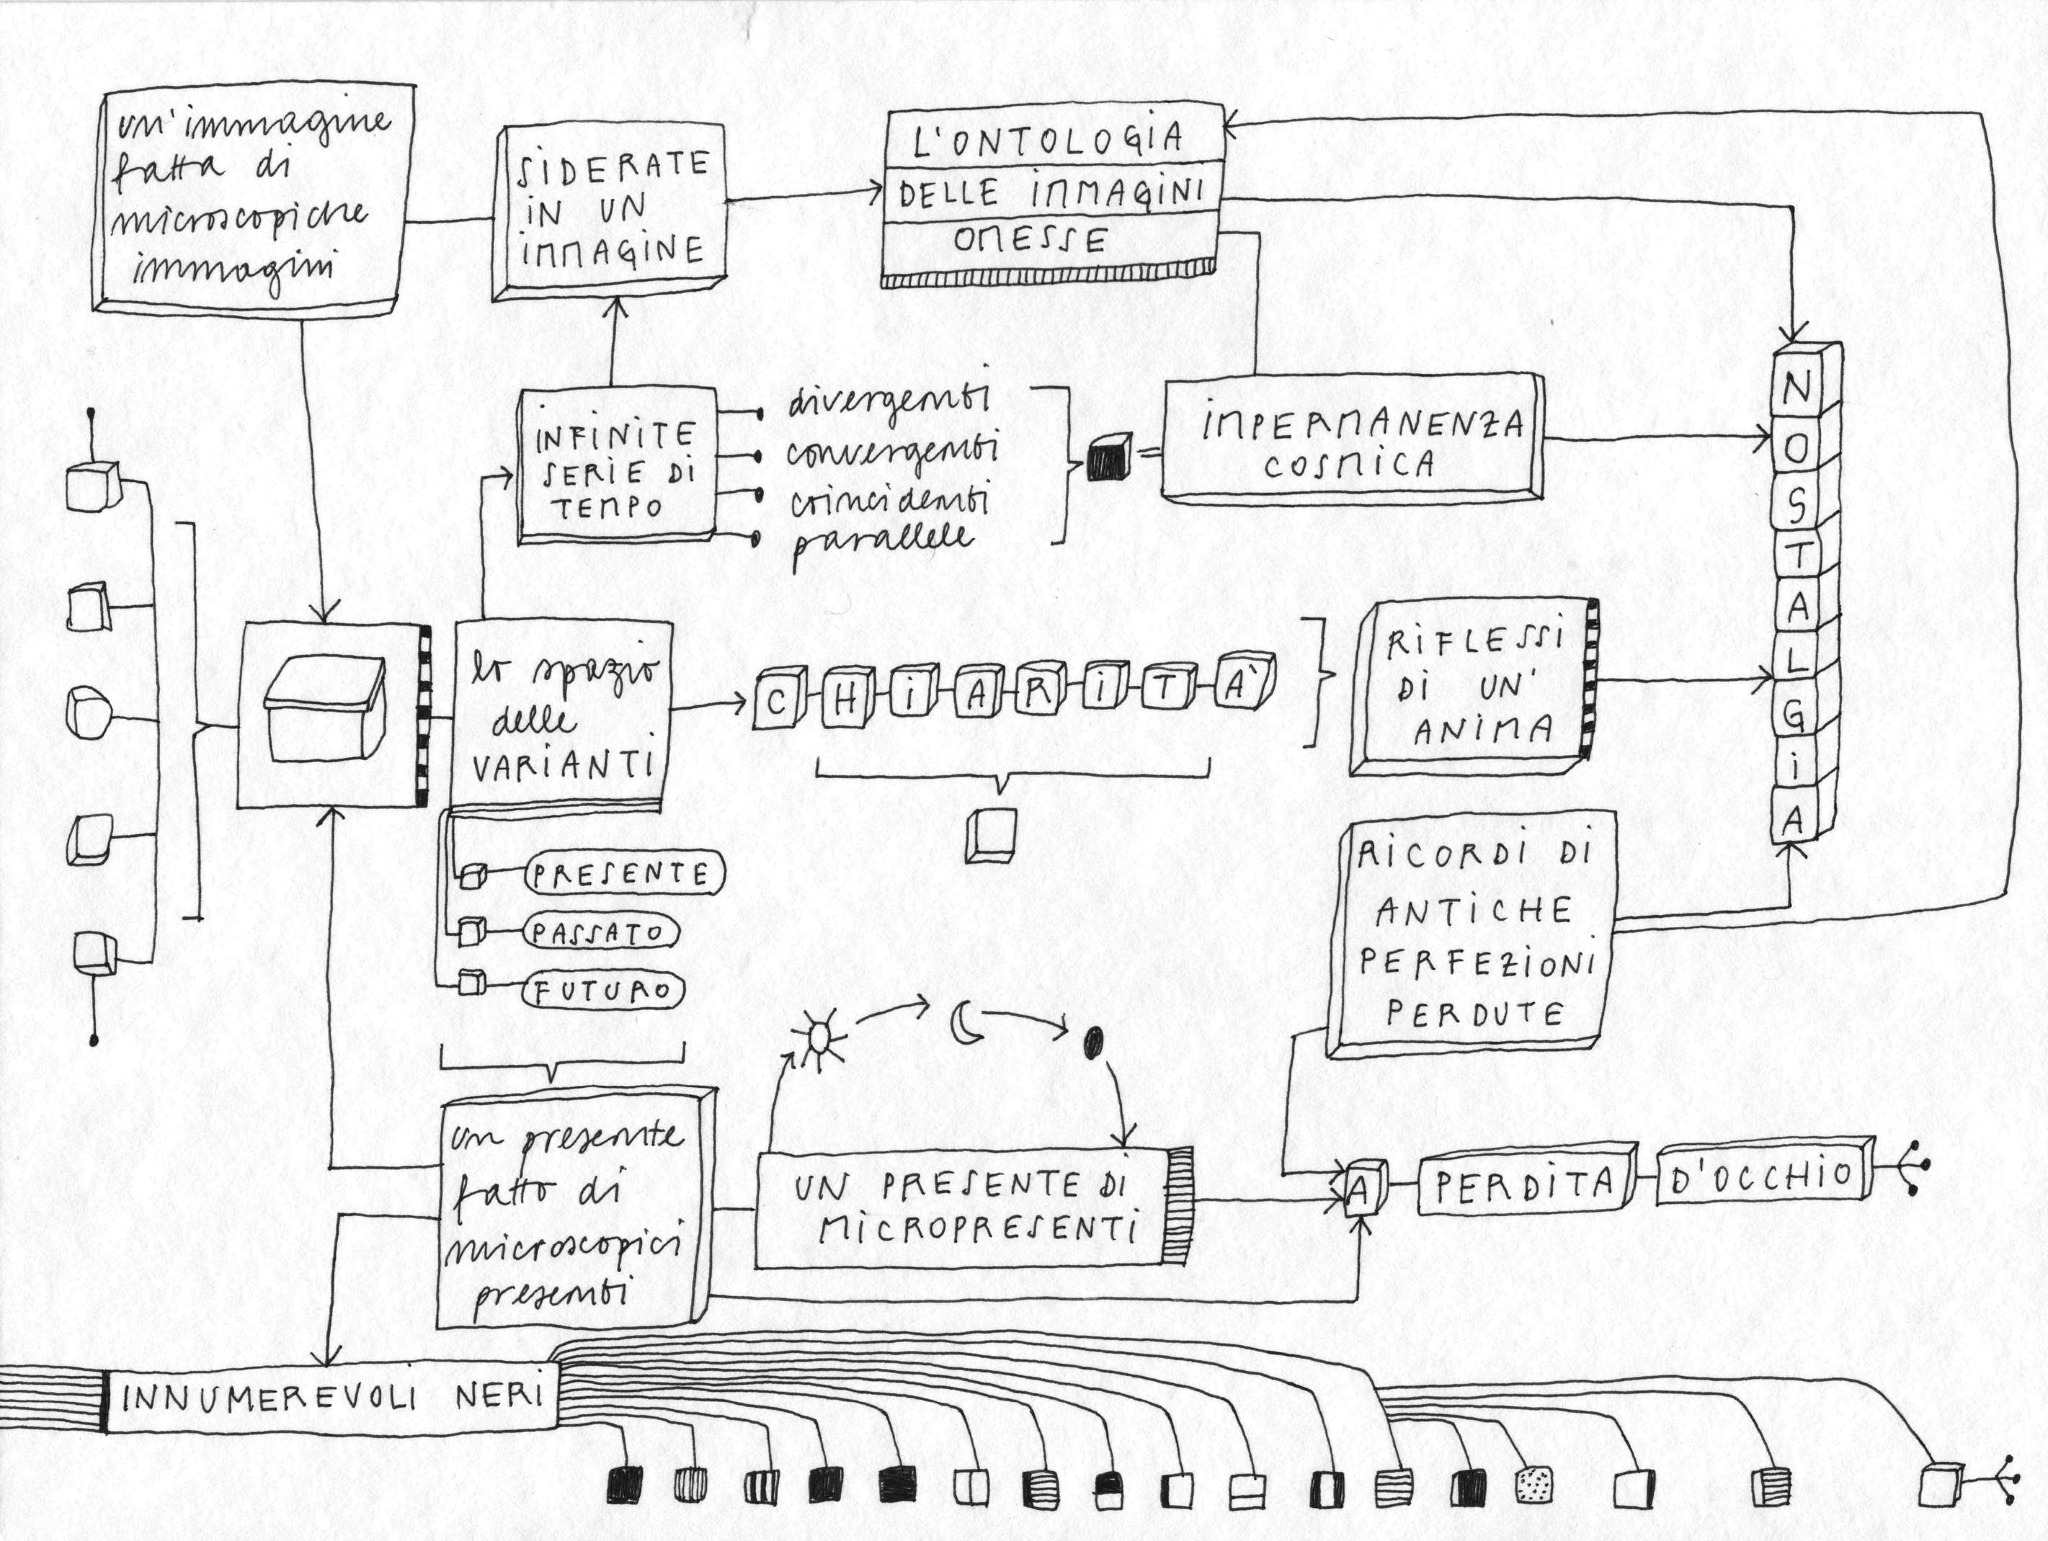 un'immagine
fatta di
microscopiche
immagini
SIDERATE
IN UN
IMMAGINE
L'ONTOLOGIA
DELLE IMMAGINI
OMESSE
INFINITE
SERIE DI
TEMPO
divergenti
convergenti
coincidenti
parallele
=
IMPERMANENZA
COSMICA
NOSTALGIA
lo spazio
delle
VARIANTI
CHIARITÀ
RIFLESSI
DI UN'
ANIMA
PRESENTE
PASSATO
FUTURO
RICORDI DI
ANTICHE
PERFEZIONI
PERDUTE
un presente
fatto di
microscopici
presenti
UN PRESENTE DI
MICROPRESENTI
A PERDITA D'OCCHIO
INNUMEREVOLI NERI